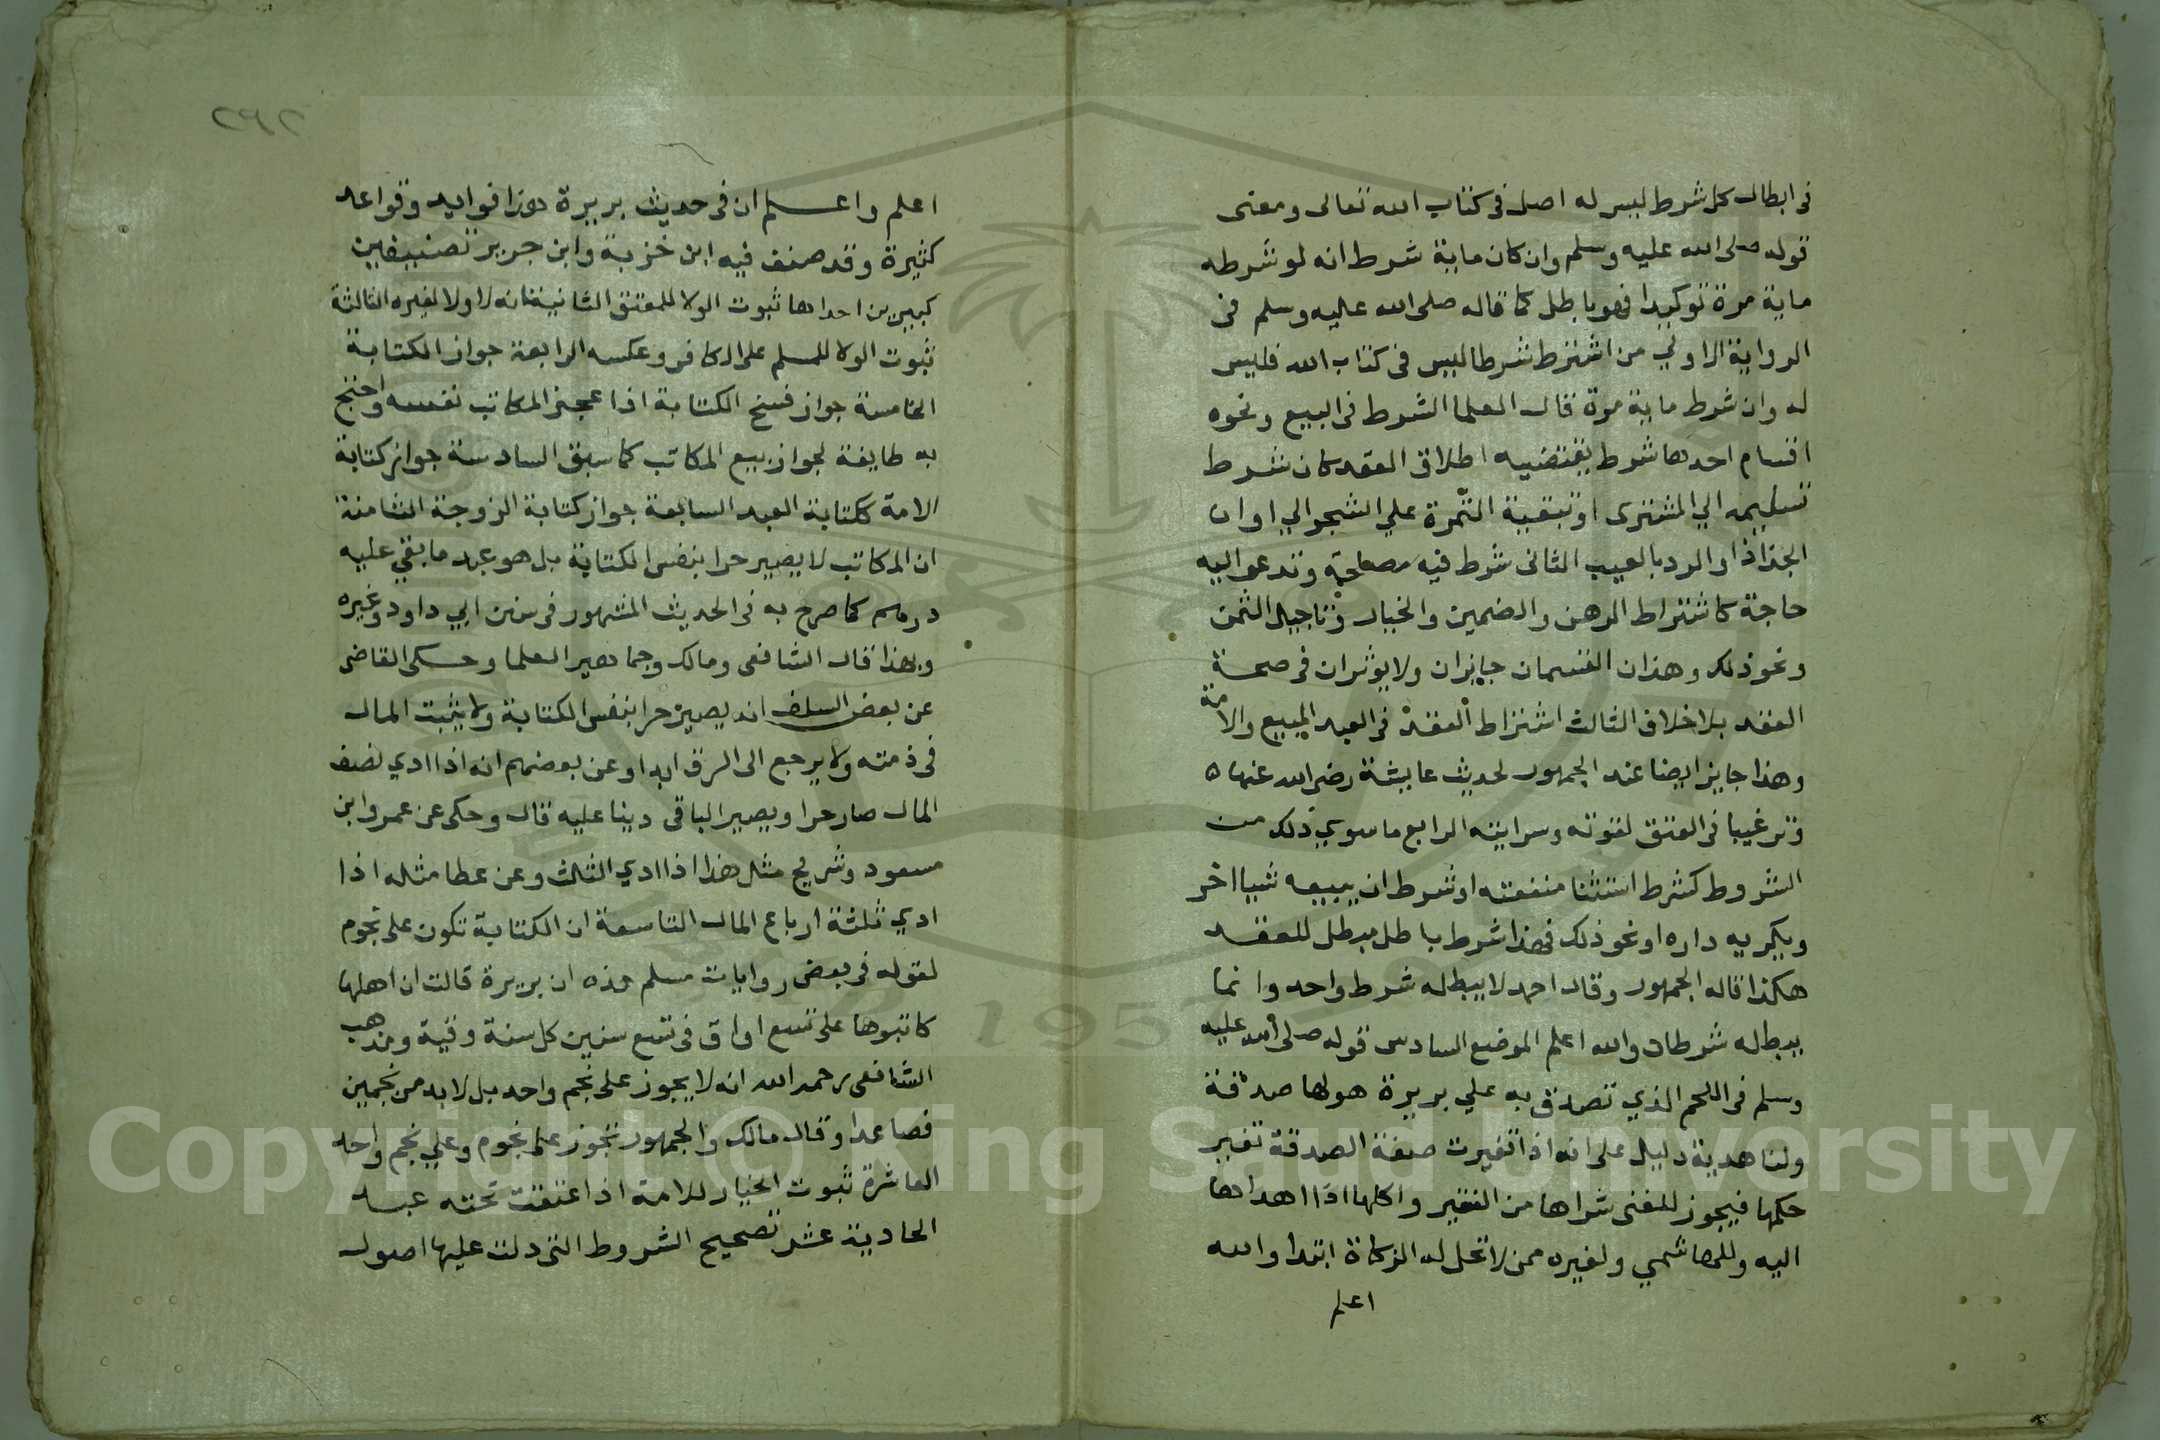 في ابطال كل شرط ليس له اصل في كتاب الله تعالى ومعنى
قوله صلى الله عليه وسلم وان كان ماية شرط انه لو شرطه
ماية مرة توكيدا فهو باطل كما قاله صلى الله عليه وسلم في
الرواية الاولي من اشترط شرطا ليس في كتاب الله فليس
له وان شرط ماية مرة قال العلما الشرط في البيع ونحوه
اقسام احدها شرط يقتضيه اطلاق العقد كان شرط
تسليمه الي المشترى او تبقية الثمرة علي الشجر الي اوان
الجذاذ او الرد بالعيب الثانى شرط فيه مصلحة وتدعو اليه
حاجة كاشتراط الرهن والضمين والخيار وتاجيل الثمن
ونحو ذلك وهذان القسمان جايزان ولا يوثران في صحة
العقد بلا خلاف الثالث اشتراط العقد في العبد المبيع والامة
وهذا جايز ايضا عند الجمهور لحديث عايشة رضي الله عنها ه
وترغيبا في العتق لقوته وسرايته الرابع ما سوي ذلك من
الشروط كشرط استثنا منفعته او شرط ان يبيعه شيا اخر
ويكريه داره او نحو ذلك فهذا شرط باطل مبطل للعقد
هكذا قاله الجمهور وقال احمد لا يبطله شرط واحد وانما
يبطله شرطان والله اعلم الموضع السادس قوله صلى الله عليه
وسلم في اللحم الذي تصدق به علي بريرة هو لها صدقة
ولنا هدية دليل على انه اذا تغيرت صفة الصدقة تغير
حكمها فيجوز للغنى شراها من الفقير واكلها اذا اهداها
اليه وللهاشمي ولغيره ممن لا تحل له الزكاة ابتدا والله
اعلم
٢٩٢
اعلم واعلم ان في حديث بريرة هذا فوايد وقواعد
كثيرة وقد صنف فيه ابن خزيمة وابن جرير تصنيفين
كبيرين احداها ثبوت الولا للمعتق الثانية انه لا ولا لغيره الثالثة
ثبوت الولا للمسلم على الكافر وعكسه الرابعة جواز الكتابة
الخامسة جواز فسخ الكتابة اذا عجز المكاتب نفسه واحتج
به طايفة لجواز بيع المكاتب كما سبق السادسة جواز كتابة
الامة ككتابة العبد السابعة جواز كتابة الزوجة الثامنة
ان المكاتب لا يصير حرا بنفس الكتابة بل هو عبد ما بقي عليه
درهم كما صرح به في الحديث المشهور في سنن ابي داود وغيره
وبهذا قال الشافعى ومالك وجماهير العلما وحكى القاضى
عن بعض السلف انه يصير حرا بنفس الكتابة ولا يثبت المال
في ذمته ولا يرجع الى الرق ابدا وعن بعضهم انه اذا ادي نصف
المال صار حرا ويصير الباقى دينا عليه قال وحكى عن عمر وابن
مسعود وشريح مثل هذا اذا ادي الثلث وعن عطا مثله اذا
ادي ثلثة ارباع المال التاسعة ان الكتابة تكون على نجوم
لقوله في بعض روايات مسلم هذه ان بريرة قالت ان اهلها
كاتبوها على تسع اواق في تسع سنين كل سنة وقية ومذهب
الشافعى رحمه الله انه لا يجوز على نجم واحد بل لا بد من نجمين
فصاعدا وقال مالك والجمهور تجوز على نجوم وعلي نجم واحد
العاشرة ثبوت الخيار للامة اذا عتقت تحت عبد
الحادية عشر تصحيح الشروط التى دلت عليها اصول
Copyright © King Saud University
195